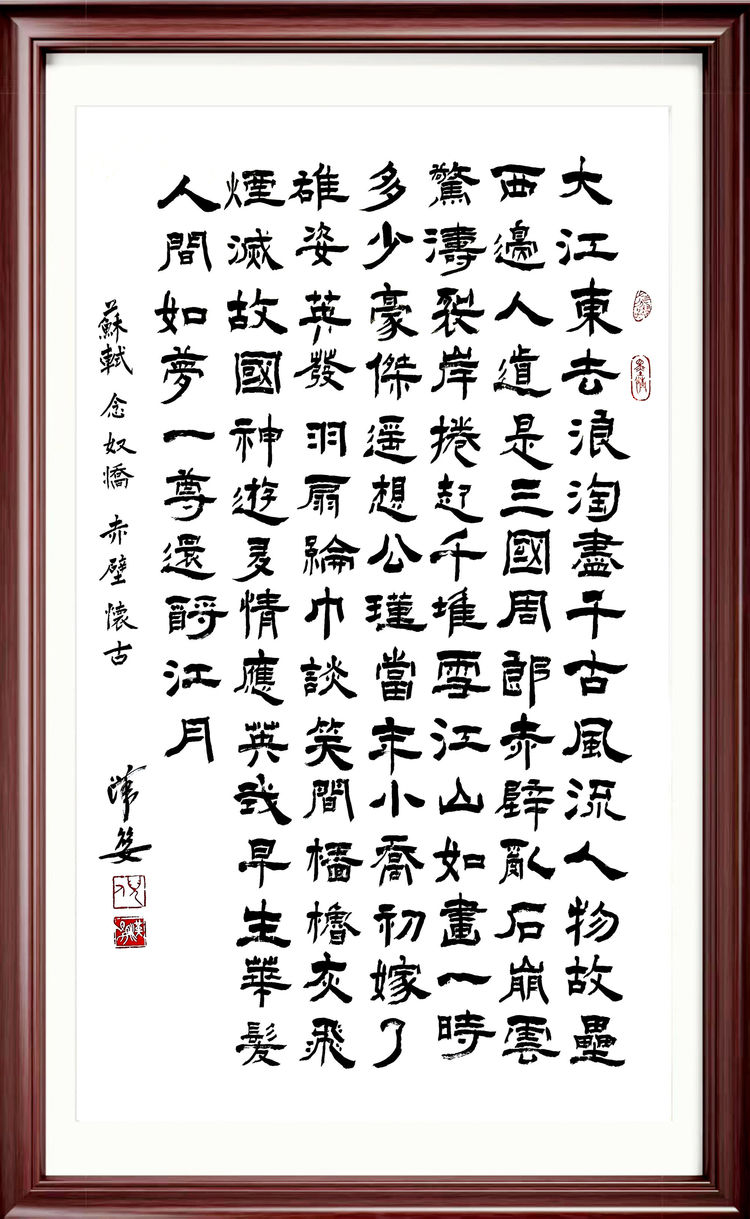 大江東去浪淘盡千古風流人物故壘
西邊人道是三國周郎赤壁亂石崩雲
驚濤裂岸捲起千堆雪江山如畫一時
多少豪傑遥想公瑾當年小喬初嫁了
雄姿英發羽扇綸巾談笑間檣櫓灰飛
煙滅故國神遊多情應英我早生華髮
人間如夢一尊還酹江月
蘇軾 念奴嬌 赤壁懷古